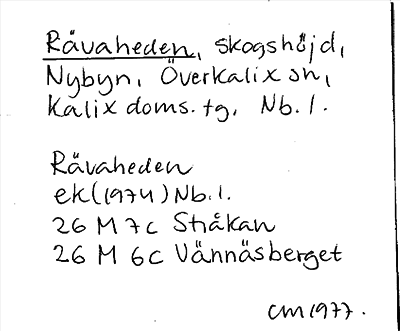 Råvaheden, skogshöjd,
Nybyn, Överkalix sn,
Kalix doms. tg, Nb. l.
Råvaheden
ek (1974) Nb. l.
26 M 7c Stråkan
26 M 6c Vännäsberget
CM 1977.